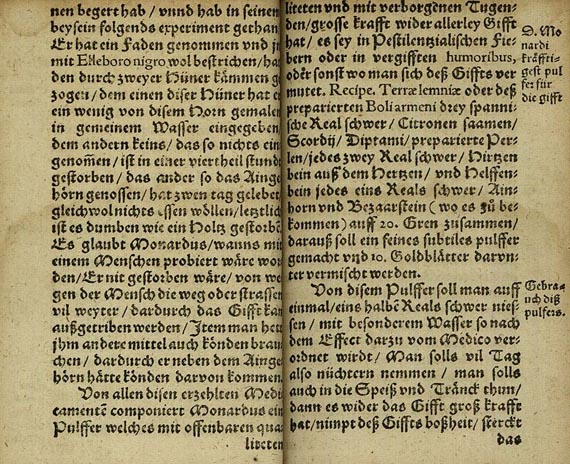 nen begert hab / vnnd hab in seinen
beysein folgends experiment gethan
Er hat ein Faden genommen vnd
mit Elleboro nigro wol bestrichen /
den durch zweyer Hüner kämmen
zogen / dem einen diser Hüner hat
ein wenig von disem Horn gemalen
in gemeinem Wasser eingegeben
dem andern keins / das so nichts ein
genom̃en / ist in einer viertheil stund
gestorben / das ander so das Ainge
hörn genossen / hat zwen tag gelebet
gleichwol nichts essen wöllen / letztlich
ist es dumben wie ein Holtz gestorbẽ
Es glaubt Monardus / wanns mit
einem Menschen probiert wäre wor
den / Er nit gestorben wäre / von we
gen der Mensch die weg oder strassen
vil weyter / dardurch das Gifft kan
außgetriben werden / Item man hett
jhm andere mittel auch könden brau
chen / dardurch er neben dem Ainge
hörn hätte könden darvon kommen
Von allen disen erzehlten Medi
camentẽ componiert Monardus ein
Pulffer welches mit offenbaren qua
liteten
liteten vnd mit verborgdnen Tugen-
den / grosse krafft wider allerley Gifft
hat / es sey in Pestilentzialischen Fie-
bern oder in vergifften humoribus,
oder sonst wo man sich deß Giffts ver
mutet. Recipe. Terræ lemniæ oder deß
preparierten Boli armeni drey spanni-
sche Real schwer / Citronen saamen /
Scordij / Diptami / preparierte Per-
len / jedes zwey Real schwer / Hirtzen
bein auß dem Hertzen / vnd Helffen-
bein jedes eins Reals schwer / Ain-
horn vnd Bezaarstein ( wo es zů be-
kommen ) auff 20. Gren zusammen /
darauß soll ein feines subtiles pulffer
gemacht vnd 10. Goldblätter darvn-
ter vermischt werden.
Von disem Pulffer soll man auff
einmal / eins halbẽ Reals schwer nies-
sen / mit besonderem Wasser so nach
dem Effect darzu vom Medico ver-
ordnet wirdt / Man solls vil Tag
also nüchtern nemmen / man solls
auch in die Speiß vnd Tränck thun /
dann es wider das Gifft groß krafft
hat / nimpt deß Giffts boßheit / sterckt
das
D. Mo
nardi
kräffti-
gest pul
fer für
die gifft
Gebra-
uch diß
pulfers.